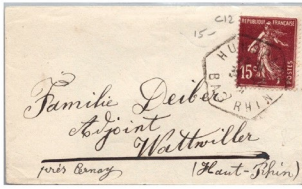 C12
15-
REPUBLIQUE FRANÇAISE
15c
POSTES
HU
BAS RHIN
Famille Deiber
Adjoint
Wattwiller
près Cernay (Haut-Rhin)